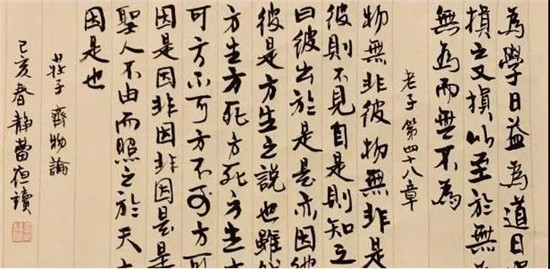 為學日益為道日
損之又損以至於無
無為而無不為
老子第四十八章
物無非彼物無非是
彼則不見自是則知之
曰彼出於是是亦因彼
彼是方生之說也雖然
方生方死方死方生方
可方不可方不可方可
因是因非因非因是是
聖人不由而照之於天
因是也
莊子 齊物論
己亥春靜夜讀